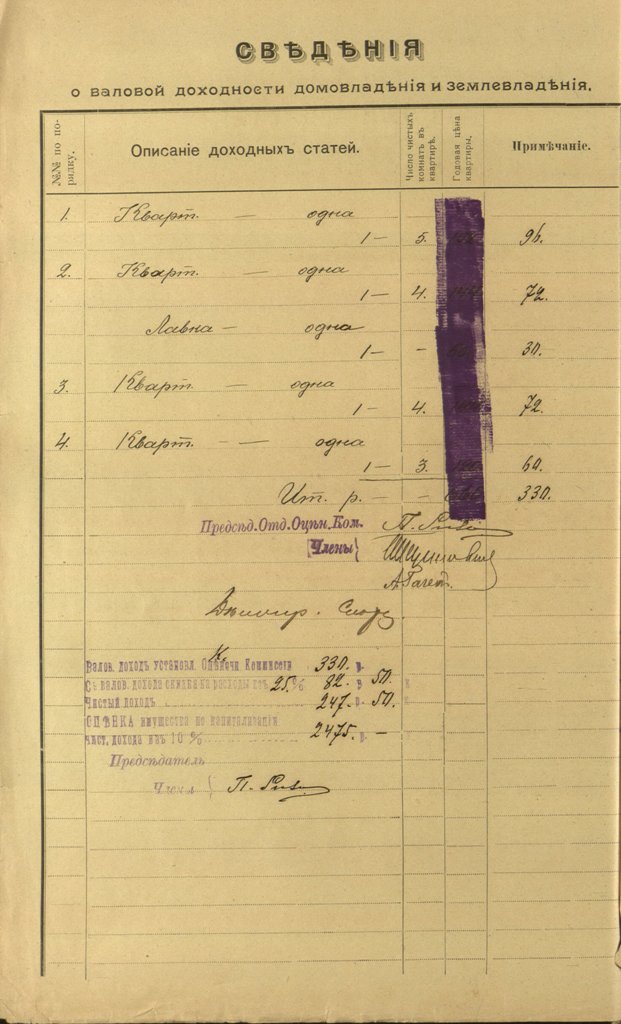 СВѢДѢНІЯ
о валовой доходности домовладѣнія и землевладѣнія.
№№ по по-
рядку.
Описаніе доходныхъ статей.
Число чистыхъ
комнатъ въ
квартирѣ.
Годовая цѣна
квартиры.
Примѣчаніе.
1. Кварт. — одна
1 — 5. 96.
2. Кварт. — одна
1 — 4. 72.
Лавка — одна
1 — - 30.
3. Кварт. — одна
1 — 4. 72.
4. Кварт. — одна
1 — 3. 60.
Ит. р. — — 330.
Предсѣд. Отд. Оцѣн. Ком.
Члены
Валов. доходъ установл. Оцѣночн Коммиссіи 330. р.
Съ валов. дохода скидка на расходы 25% 82. р 50. к
Чистый доходъ 247. р. 50. к
ОЦѢНКА имущества по капитализаціи
чист. дохода изъ 10 % 2475. р. —
Предсѣдатель
Члены